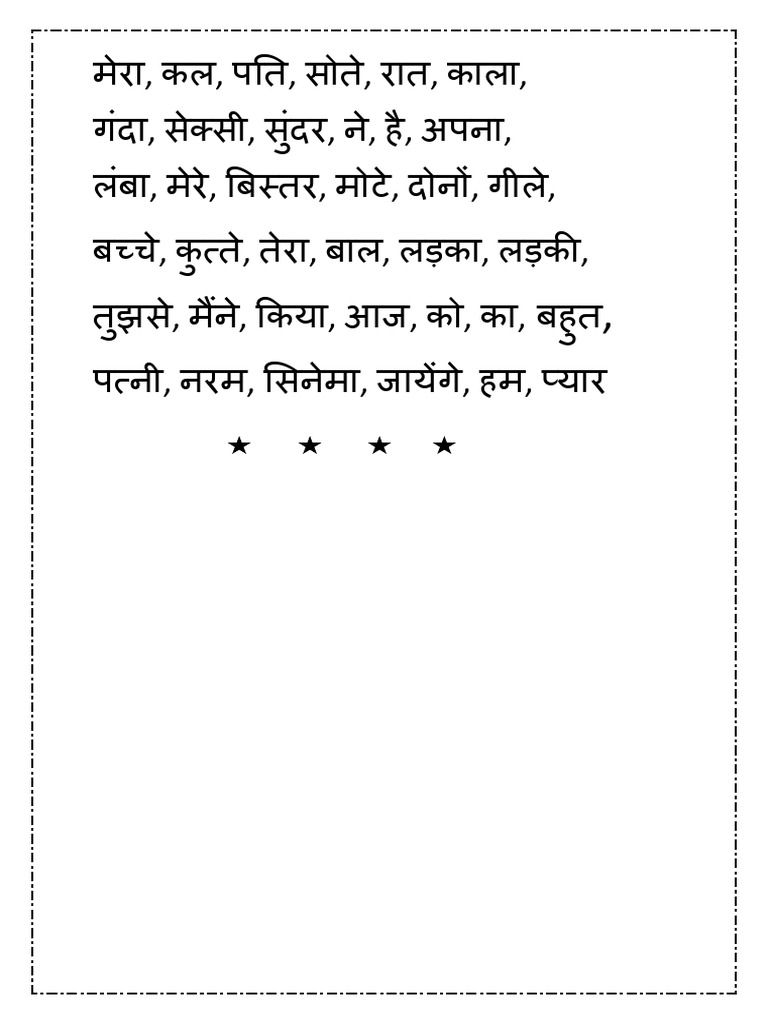 मेरा, कल, पति, सोते, रात, काला,
गंदा, सेक्सी, सुंदर, ने, है, अपना,
लंबा, मेरे, बिस्तर, मोटे, दोनों, गीले,
बच्चे, कुत्ते, तेरा, बाल, लड़का, लड़की,
तुझसे, मैंने, किया, आज, को, का, बहुत,
पत्नी, नरम, सिनेमा, जायेंगे, हम, प्यार
★ ★ ★ ★